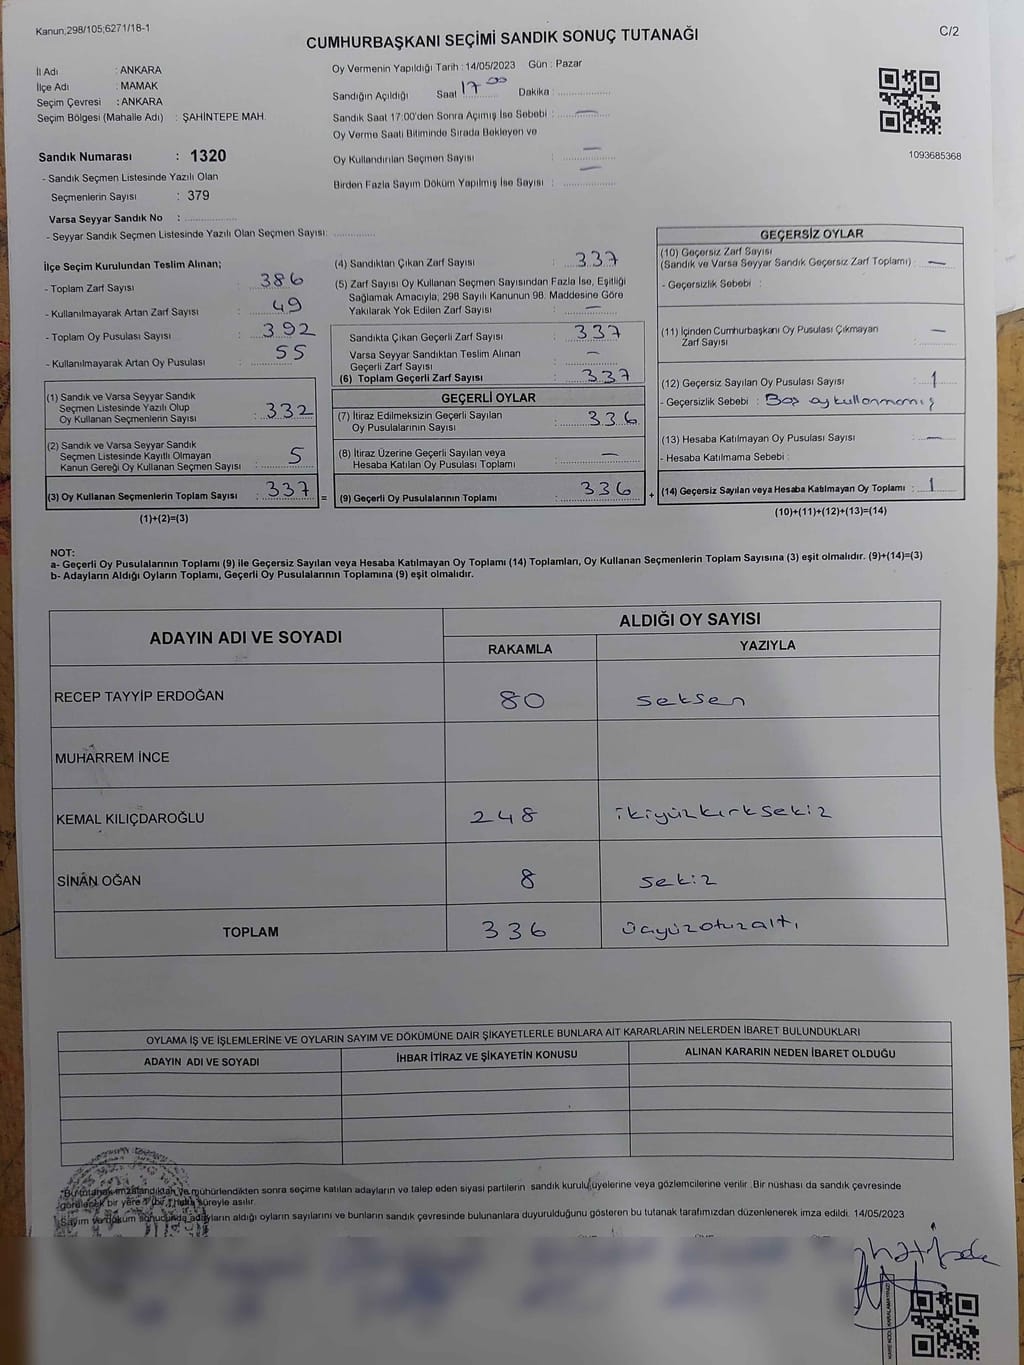 Kanun;298/105;6271/18-1
CUMHURBAŞKANI SEÇİMİ SANDIK SONUÇ TUTANAĞI
C/2
İl Adı : ANKARA
İlçe Adı : MAMAK
Seçim Çevresi : ANKARA
Seçim Bölgesi (Mahalle Adı) : ŞAHİNTEPE MAH.
Oy Vermenin Yapıldığı Tarih : 14/05/2023 Gün : Pazar
Sandığın Açıldığı Saat 17 00 Dakika :
Sandık Saat 17:00'den Sonra Açımış İse Sebebi : —
Oy Verme Saati Bitiminde Sırada Bekleyen ve
Oy Kullandırılan Seçmen Sayısı : —
Birden Fazla Sayım Döküm Yapılmış İse Sayısı : —
1093685368
Sandık Numarası : 1320
- Sandık Seçmen Listesinde Yazılı Olan
Seçmenlerin Sayısı : 379
Varsa Seyyar Sandık No :
- Seyyar Sandık Seçmen Listesinde Yazılı Olan Seçmen Sayısı:
İlçe Seçim Kurulundan Teslim Alınan;
- Toplam Zarf Sayısı : 386
- Kullanılmayarak Artan Zarf Sayısı : 49
- Toplam Oy Pusulası Sayısı : 392
- Kullanılmayarak Artan Oy Pusulası : 55
(1) Sandık ve Varsa Seyyar Sandık
Seçmen Listesinde Yazılı Olup
Oy Kullanan Seçmenlerin Sayısı : 332
(2) Sandık ve Varsa Seyyar Sandık
Seçmen Listesinde Kayıtlı Olmayan
Kanun Gereği Oy Kullanan Seçmen Sayısı : 5
(3) Oy Kullanan Seçmenlerin Toplam Sayısı : 337 =
(1)+(2)=(3)
(4) Sandıktan Çıkan Zarf Sayısı : 337
(5) Zarf Sayısı Oy Kullanan Seçmen Sayısından Fazla İse, Eşitliği
Sağlamak Amacıyla, 298 Sayılı Kanunun 98. Maddesine Göre
Yakılarak Yok Edilen Zarf Sayısı : —
Sandıkta Çıkan Geçerli Zarf Sayısı : 337
Varsa Seyyar Sandıktan Teslim Alınan
Geçerli Zarf Sayısı : —
(6) Toplam Geçerli Zarf Sayısı : 337
GEÇERLİ OYLAR
(7) İtiraz Edilmeksizin Geçerli Sayılan
Oy Pusulalarının Sayısı : 336
(8) İtiraz Üzerine Geçerli Sayılan veya
Hesaba Katılan Oy Pusulası Toplamı : —
(9) Geçerli Oy Pusulalarının Toplamı : 336 +
GEÇERSİZ OYLAR
(10) Geçersiz Zarf Sayısı
(Sandık ve Varsa Seyyar Sandık Geçersiz Zarf Toplamı) : —
- Geçersizlik Sebebi :
(11) İçinden Cumhurbaşkanı Oy Pusulası Çıkmayan
Zarf Sayısı : —
(12) Geçersiz Sayılan Oy Pusulası Sayısı : 1
- Geçersizlik Sebebi : Boş oy kullanmamış
(13) Hesaba Katılmayan Oy Pusulası Sayısı : —
- Hesaba Katılmama Sebebi :
(14) Geçersiz Sayılan veya Hesaba Katılmayan Oy Toplamı : 1
(10)+(11)+(12)+(13)=(14)
NOT:
a- Geçerli Oy Pusulalarının Toplamı (9) ile Geçersiz Sayılan veya Hesaba Katılmayan Oy Toplamı (14) Toplamları, Oy Kullanan Seçmenlerin Toplam Sayısına (3) eşit olmalıdır. (9)+(14)=(3)
b- Adayların Aldığı Oyların Toplamı, Geçerli Oy Pusulalarının Toplamına (9) eşit olmalıdır.
ADAYIN ADI VE SOYADI ALDIĞI OY SAYISI
RAKAMLA YAZIYLA
RECEP TAYYİP ERDOĞAN 80 seksen
MUHARREM İNCE
KEMAL KILIÇDAROĞLU 248 ikiyüzkırksekiz
SİNAN OĞAN 8 sekiz
TOPLAM 336 üçyüzotuzaltı
OYLAMA İŞ VE İŞLEMLERİNE VE OYLARIN SAYIM VE DÖKÜMÜNE DAİR ŞİKAYETLERLE BUNLARA AİT KARARLARIN NELERDEN İBARET BULUNDUKLARI
ADAYIN ADI VE SOYADI İHBAR İTİRAZ VE ŞİKAYETİN KONUSU ALINAN KARARIN NEDEN İBARET OLDUĞU
*Bu tutanak imzalandıktan ve mühürlendikten sonra seçime katılan adayların ve talep eden siyasi partilerin sandık kurulu üyelerine veya gözlemcilerine verilir .Bir nüshası da sandık çevresinde
görülecek bir yere 1 (bir) hafta süreyle asılır.
Sayım ve döküm sonucunda adayların aldığı oyların sayılarını ve bunların sandık çevresinde bulunanlara duyurulduğunu gösteren bu tutanak tarafımızdan düzenlenerek imza edildi. 14/05/2023